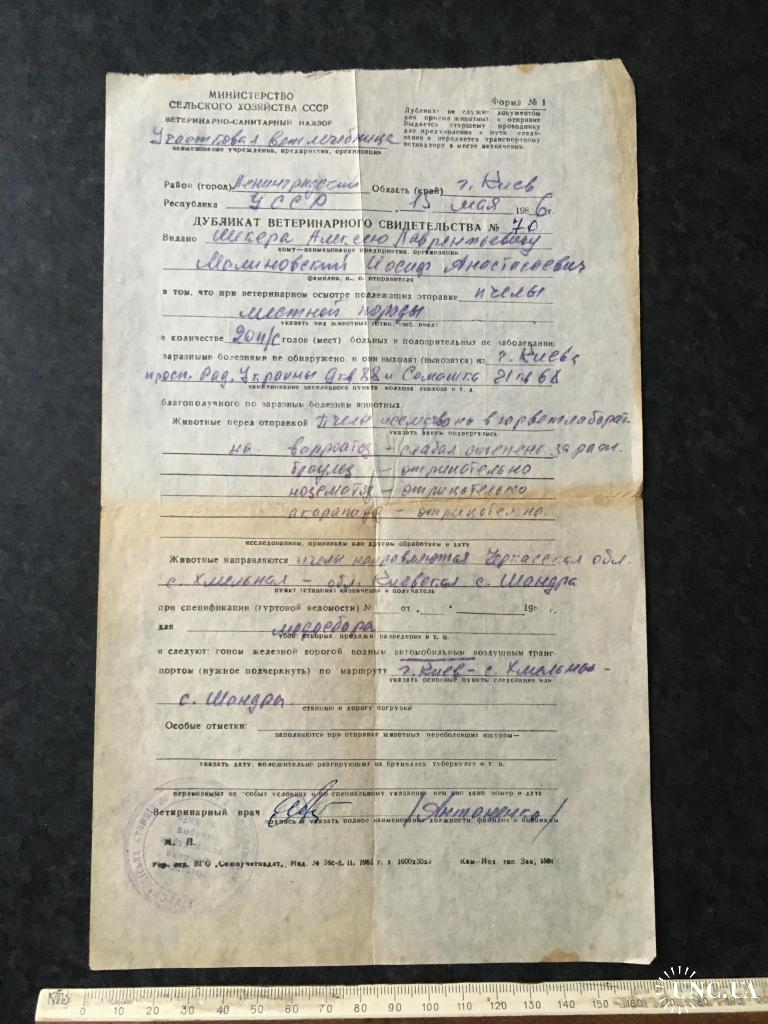 МИНИСТЕРСТВО
СЕЛЬСКОГО ХОЗЯЙСТВА СССР
ВЕТЕРИНАРНО-САНИТАРНЫЙ НАДЗОР
Участковая ветлечебница
наименование учреждения, предприятия, организации
Форма № 1
Дубликат не служит документом
для приема животных к отправке
Выдается старшему проводнику
для предъявления в пути следо-
вания и передается транспортному
ветнадзору в месте назначения.
Район (город) Ленинградский Область (край) г. Киев
Республика УССР 15 мая 1986 г.
ДУБЛИКАТ ВЕТЕРИНАРНОГО СВИДЕТЕЛЬСТВА № 70
Выдано Шкера Алексею Лаврентьевичу
кому—наименование предприятия, организации
Малиновский Иосиф Анастасевич
фамилия, и., о. отправителя
в том, что при ветеринарном осмотре подлежащих отправке пчелы
местной породы
указать вид животных (птиц, рыб, пчел)
в количестве 20 п/с голов (мест) больных и подозрительных по заболеванию
заразными болезнями не обнаружено и они выходят (вывозятся) из г. Киева
просп. Рад. Украины 9 кв 88 и Семашка 21 кв 68
наименование населенного пункта колхоза совхоза и т. д.
благополучного по заразным болезням животных
Животные перед отправкой Пчелы исследованы в горветлаборат-
указать каким подвергались
на варроатоз – слабая степень зараж.
браулез – отрицательно
нозематоз – отрицательно
акарапидоз – отрицательно.
исследованиям, прививкам или другим обработкам и дату
Животные направляются пчелы направляются Черкасская обл.
с. Хмельная – обл. Киевская с. Шандра
пункт (станция) назначения и получатель
при спецификации (гуртовой ведомости) № от 198 г.
для медосбора
убоя, откорма, продажи разведения и т. п.
и следуют: гоном железной дорогой водным автомобильным воздушным транс-
портом (нужное подчеркнуть) по маршруту г. Киев – с. Хмельная –
указать основные пункты следования или
с. Шандра
станцию и дорогу погрузки
Особые отметки:
заполняются при отправке животных переболевших ящуром—
указать дату, положительно реагирующих на бруцеллез туберкулез и т. п.
перевозимых на особых условиях и по специальному указанию, кем оно дано номер и дата
Ветеринарный врач /Антоненко/
подпись и указать полное наименование должности, фамилия и инициалы
М. П.
Укр. отд. ВГО „Союзучетиздат„
Кам-Под. тип. Зак.
10 20 30 40 50 60 70 80 90 100 110 120 130 140 150 160
UNC.UA